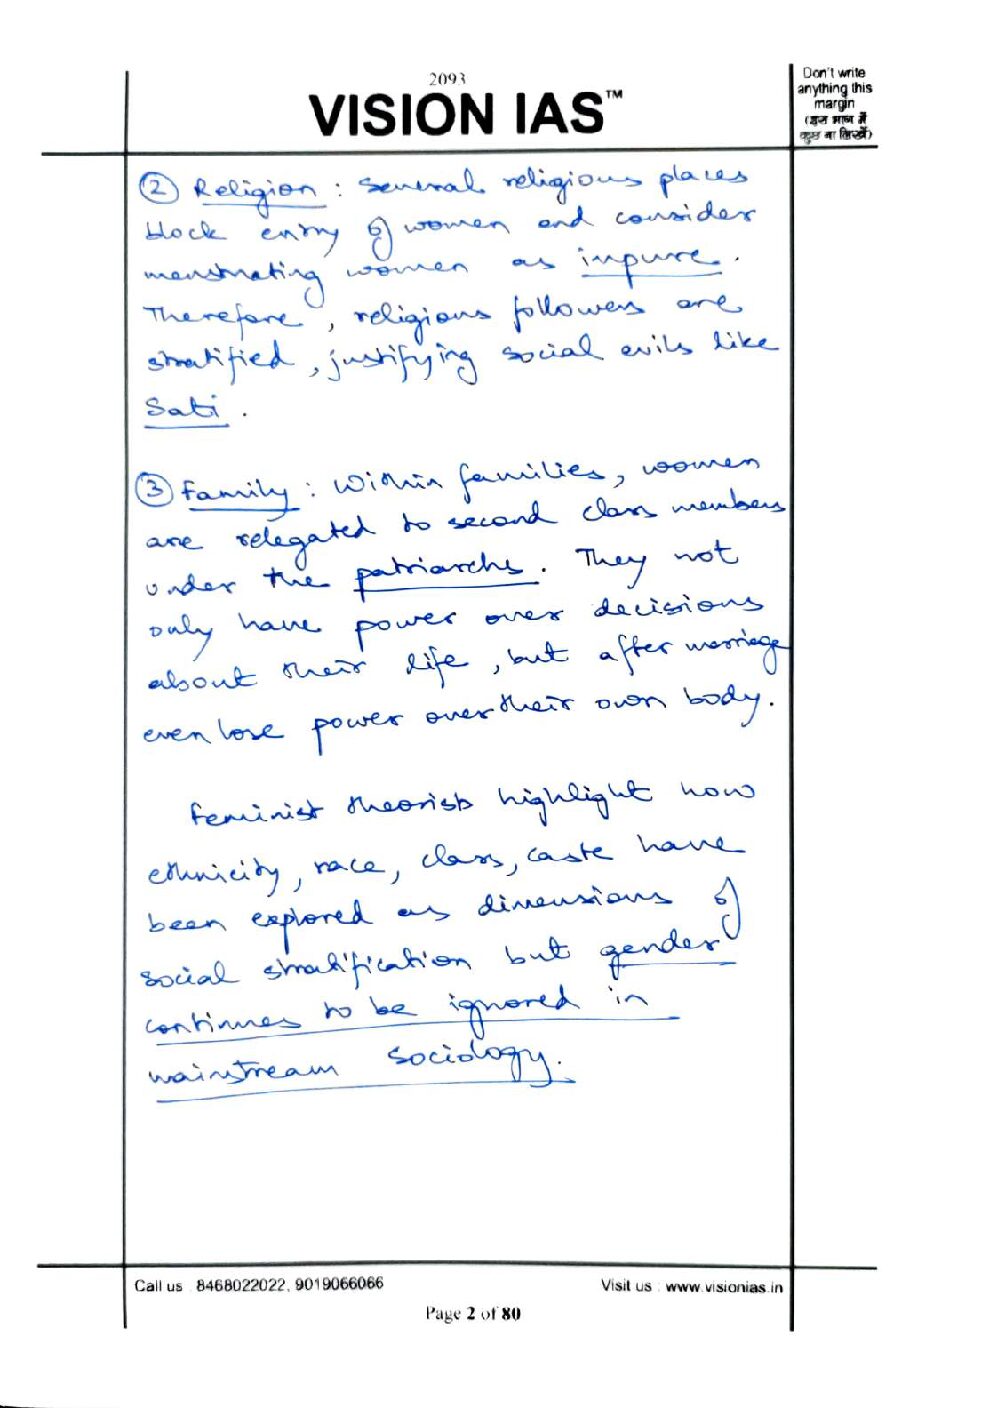 2093
VISION IAS™
Don't write
anything this
margin
(इस भाग में
कुछ ना लिखें)
② Religion : Several religious places
block entry of women and consider
menstruating women as impure.
Therefore, religious followers are
stratified, justifying social evils like
Sati.
③ Family : Within families, women
are relegated to second class members
under the patriarchs. They not
only have power over decisions
about their life, but after marriage
even lose power over their own body.
Feminist theorists highlight how
ethnicity, race, class, caste have
been explored as dimensions of
social stratification but gender
continues to be ignored in
mainstream sociology.
Call us : 8468022022, 9019066066
Visit us : www.visionias.in
Page 2 of 80